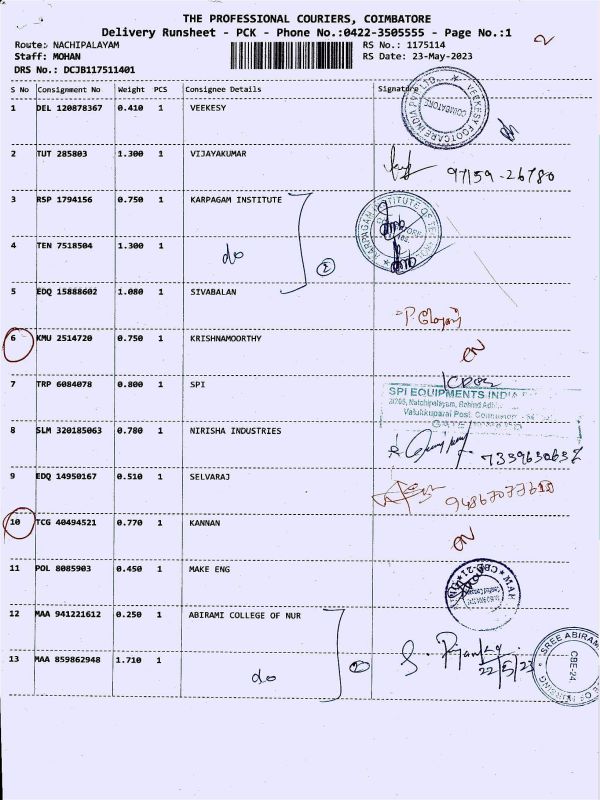 THE PROFESSIONAL COURIERS, COIMBATORE
Delivery Runsheet - PCK - Phone No.:0422-3505555 - Page No.:1
2
Route: NACHIPALAYAM RS No.: 1175114
Staff: MOHAN RS Date: 23-May-2023
DRS No.: DCJB117511401
S No Consignment No Weight PCS Consignee Details Signature
1 DEL 120878367 0.410 1 VEEKESY
VEEKESY FOOTCARE INDIA PVT LTD. COIMBATORE
2 TUT 285803 1.300 1 VIJAYAKUMAR
97159-26780
3 RSP 1794156 0.750 1 KARPAGAM INSTITUTE
KARPAGAM INSTITUTE OF
4 TEN 7518504 1.300 1 do 2
5 EDQ 15888602 1.080 1 SIVABALAN
6 KMU 2514720 0.750 1 KRISHNAMOORTHY
7 TRP 6084078 0.800 1 SPI
SPI EQUIPMENTS INDIA
Valukkuparai Post
8 SLM 320185063 0.780 1 NIRISHA INDUSTRIES
7339630632
9 EDQ 14950167 0.510 1 SELVARAJ
10 TCG 40494521 0.770 1 KANNAN
11 POL 8085903 0.450 1 MAKE ENG
CBE-21
12 MAA 941221612 0.250 1 ABIRAMI COLLEGE OF NUR
13 MAA 859862948 1.710 1 do
22/5/23
SREE ABIRAMI
CBE-24